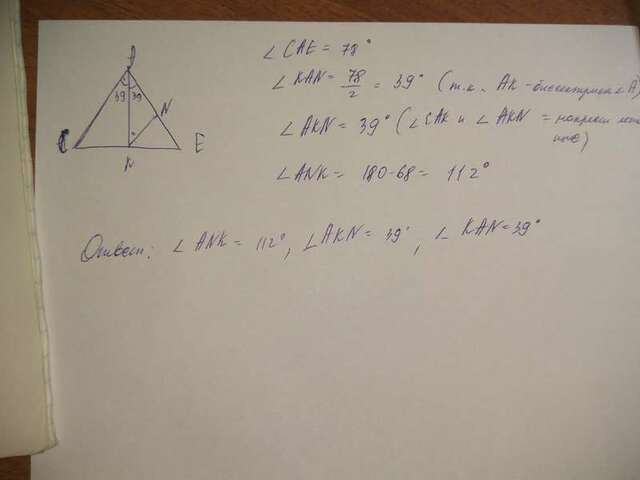 A
39 39
N
C K E
∠CAE = 78°
∠KAN = 78/2 = 39° (т.к. AK - биссектриса ∠A)
∠AKN = 39° (∠CAK и ∠AKN = накрест лежащие)
∠ANK = 180-68 = 112°
Ответ: ∠ANK = 112°, ∠AKN = 39°, ∠KAN = 39°